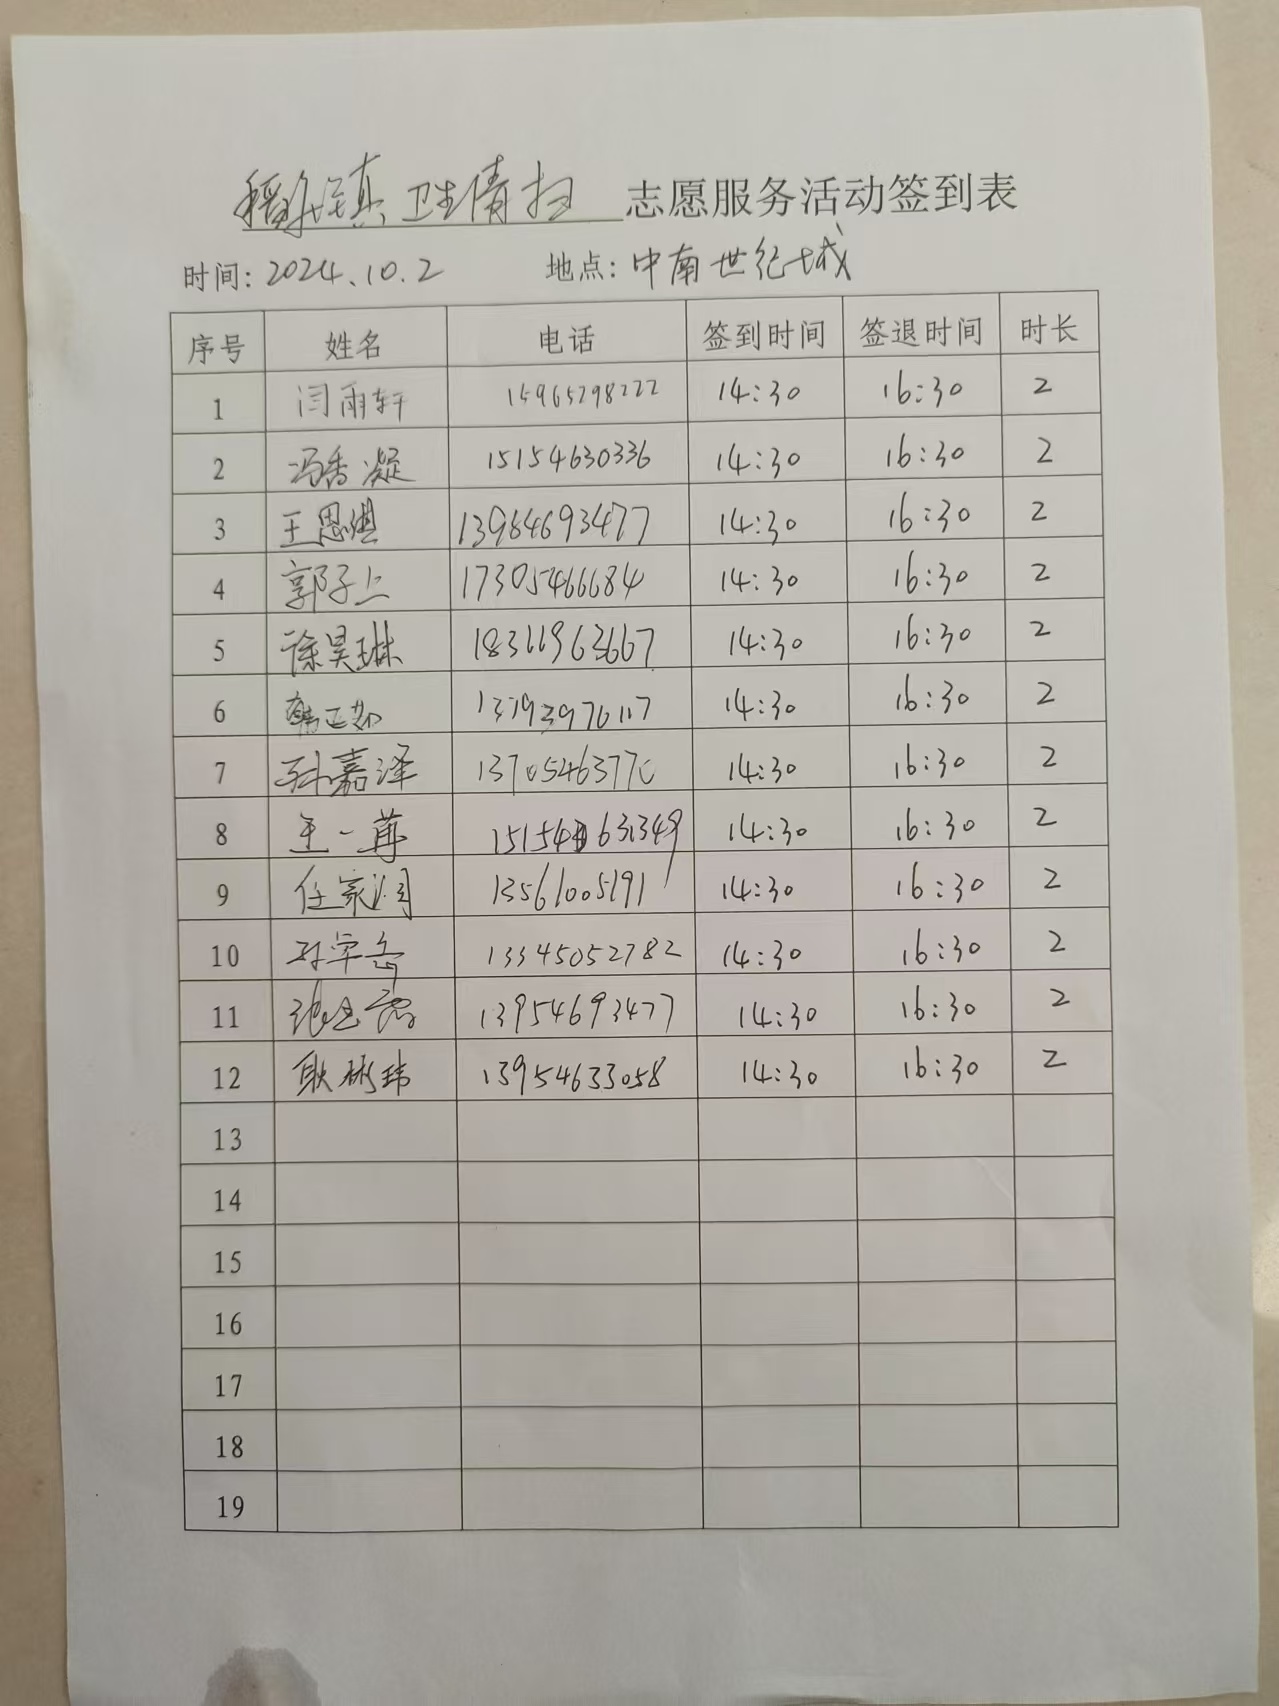 稻庄镇卫生清扫 志愿服务活动签到表
时间: 2024.10.2 地点: 中南世纪城
序号 姓名 电话 签到时间 签退时间 时长
1 闫雨轩 15965298222 14:30 16:30 2
2 冯香凝 15154630336 14:30 16:30 2
3 王思淇 13964693477 14:30 16:30 2
4 郭子上 17305466684 14:30 16:30 2
5 徐昊琳 18366963667 14:30 16:30 2
6 韩正如 13793976117 14:30 16:30 2
7 孙嘉泽 13705463770 14:30 16:30 2
8 王一苒 14:30 16:30 2
9 任家润 13561005191 14:30 16:30 2
10 13345052782 14:30 16:30 2
11 13954693477 14:30 16:30 2
12 耿彬玮 13954633058 14:30 16:30 2
13
14
15
16
17
18
19